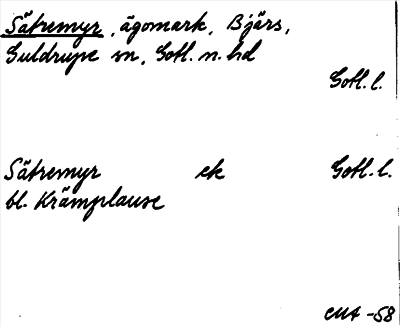 Sätremyr, ägomark, Bjärs,
Guldrupe sn, Gotl. n. hd
Gotl. l.
Sätremyr ek Gotl. l.
bl. Krämplause
CMA -58